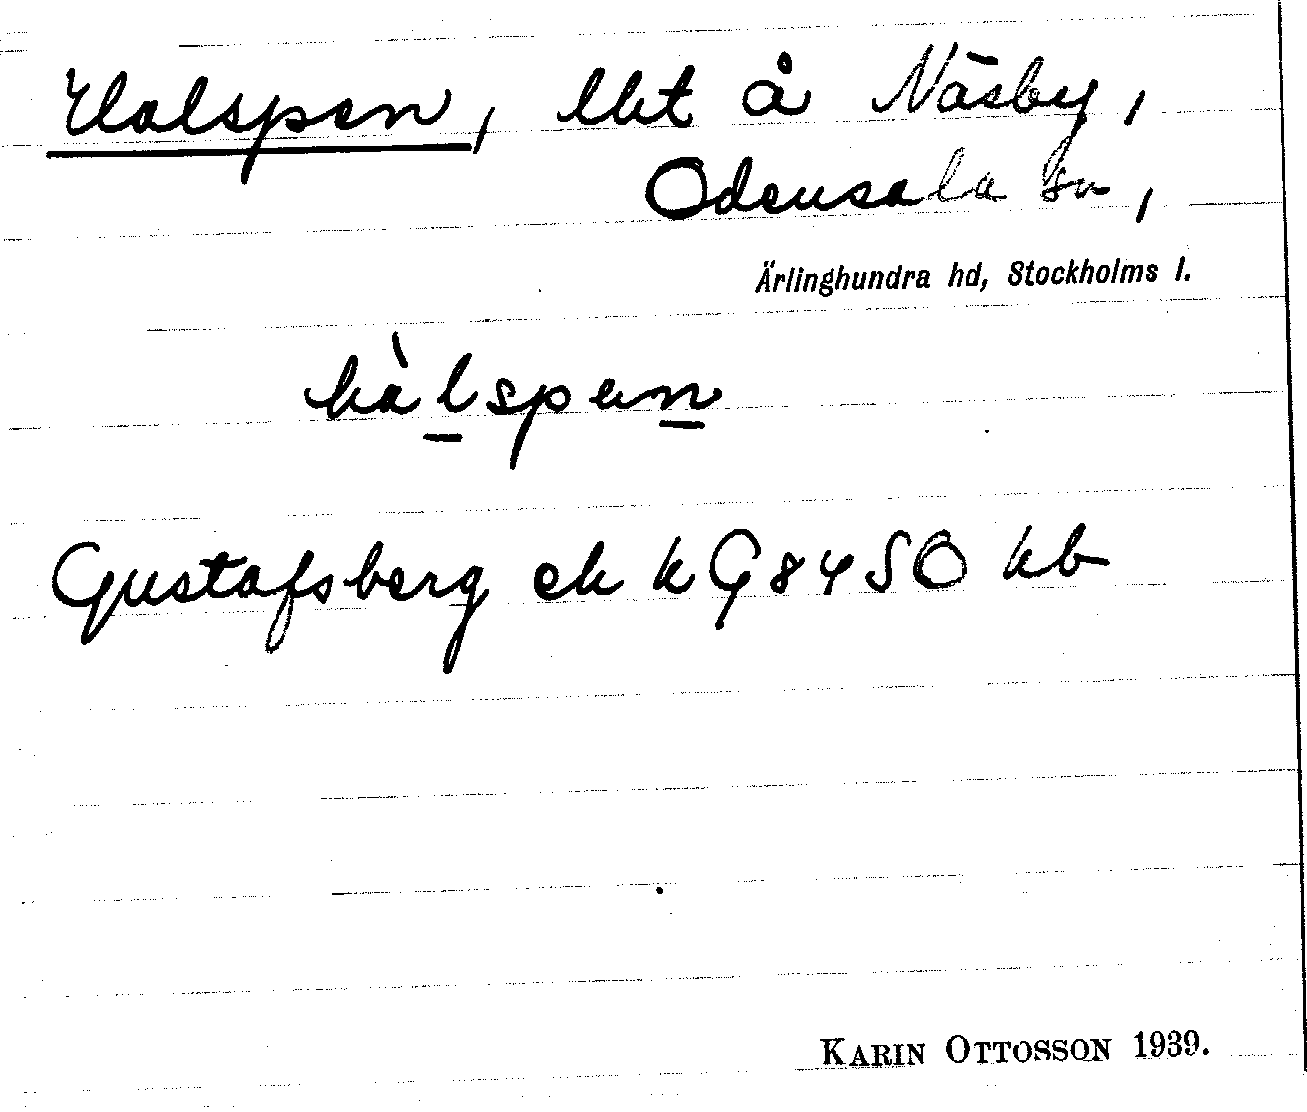 Halspen, lht å Näsby,
Odensala sn,
Ärlinghundra hd, Stockholms l.
hàlspen
Gustafsberg ek kG 8450 hb
KARIN OTTOSSON 1939.